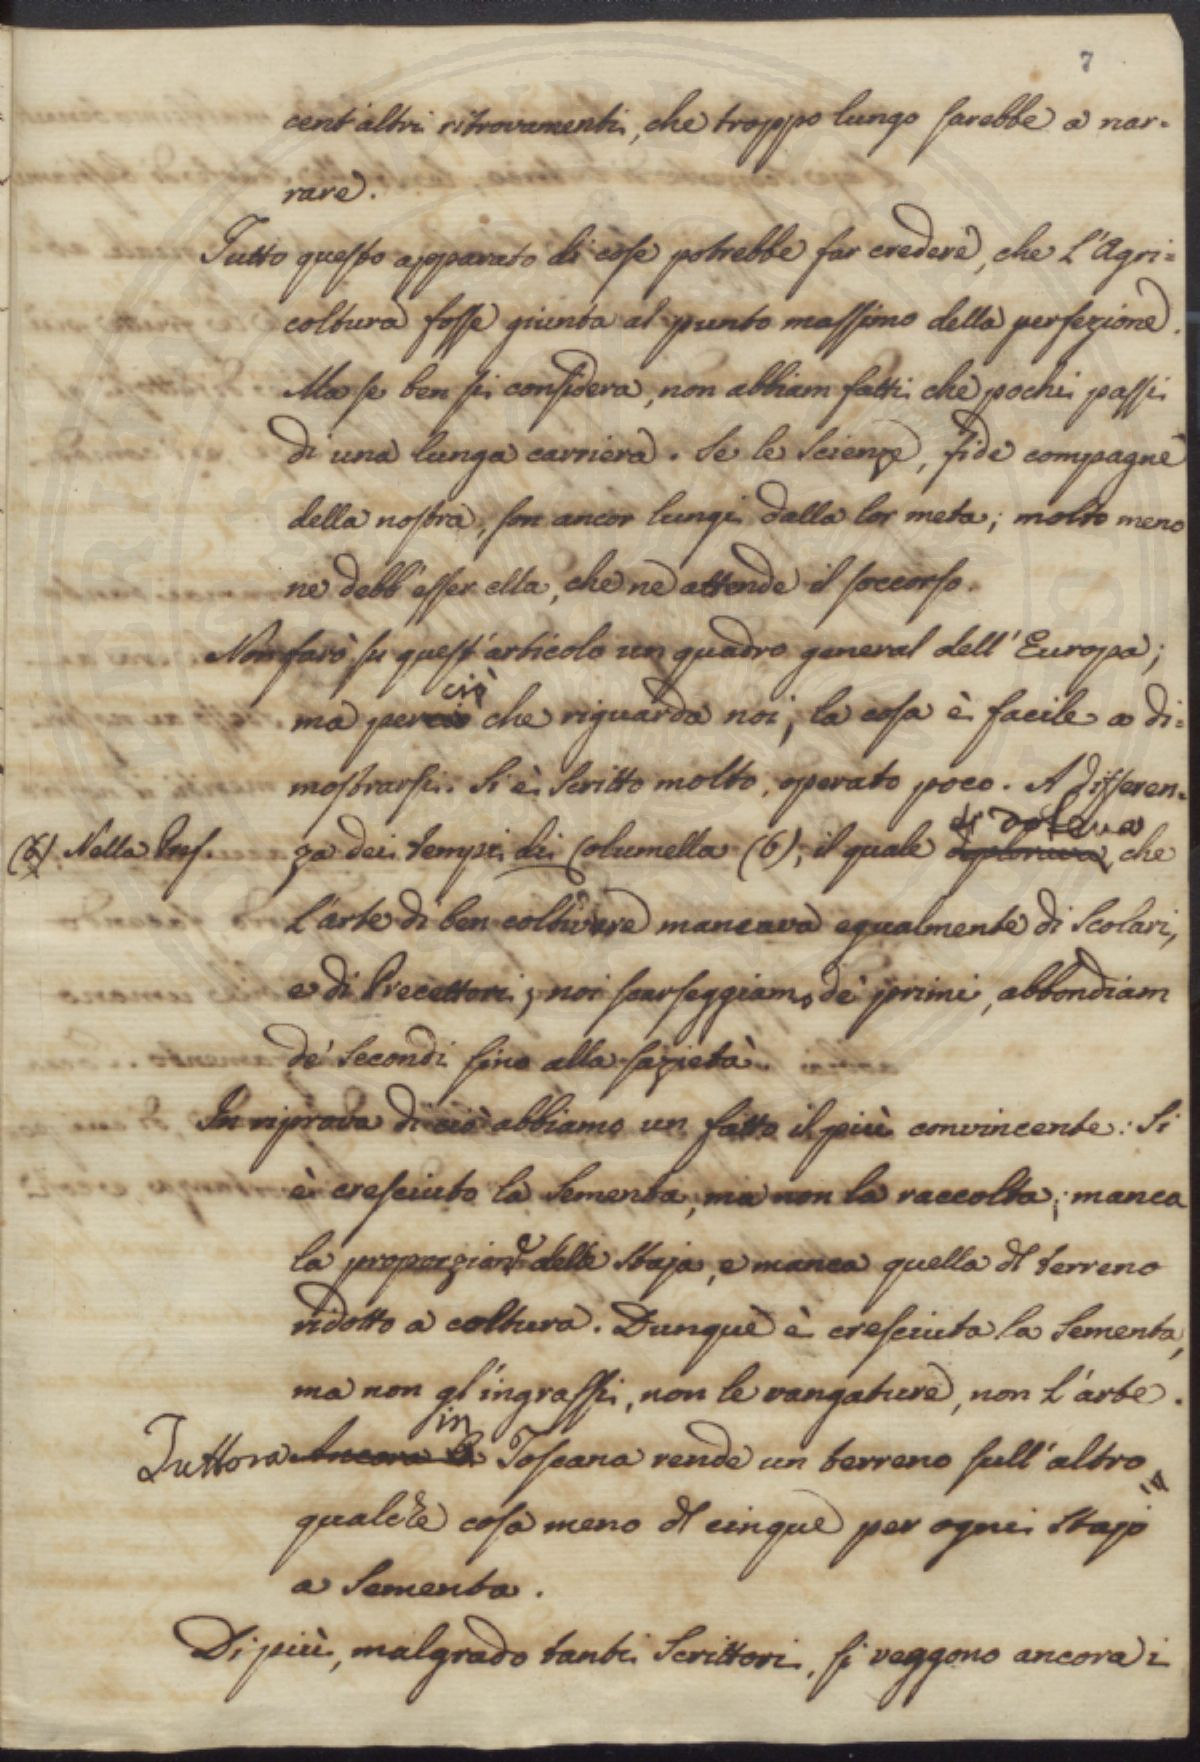 7
cent'altri ritrovamenti, che troppo lungo sarebbe a nar-
rare.
Tutto questo apparato di cose potrebbe far credere, che l'Agri-
coltura fosse giunta al punto massimo della perfezione.
Ma se ben si considera, non abbiam fatti che pochi passi
di una lunga carriera. Se le Scienze, fide compagne
della nostra, son ancor lungi dalla lor meta; molto meno
ne debb'esser ella, che ne attende il soccorso.
Non farò su quest'articolo un quadro general dell'Europa;
ciò
ma per ciò che riguarda noi, la cosa è facile a di-
mostrarsi. Si è scritto molto, operato poco. A differen-
si doleva
(6) Nella Pref. za dei tempi di Columella (6), il quale deplorava, che
l'arte di ben coltivare mancava egualmente di Scolari,
e di Precettori; noi scarseggiamo de' primi, abbondiam
de' secondi fino alla sazietà.
In riprova di ciò abbiamo un fatto il più convincente: Si
è cresciuto la sementa, ma non la raccolta; manca
la proporzione delle staja, e manca quella dl terreno
ridotto a coltura. Dunque è cresciuta la sementa,
ma non gl'ingrassi, non le vangature, non l'arte.
in
Tuttora Ancora la Toscana rende un terreno sull'altro
qualche cosa meno dl cinque per ogni stajo
a sementa.
Di più, malgrado tanti Scrittori, si veggono ancora i